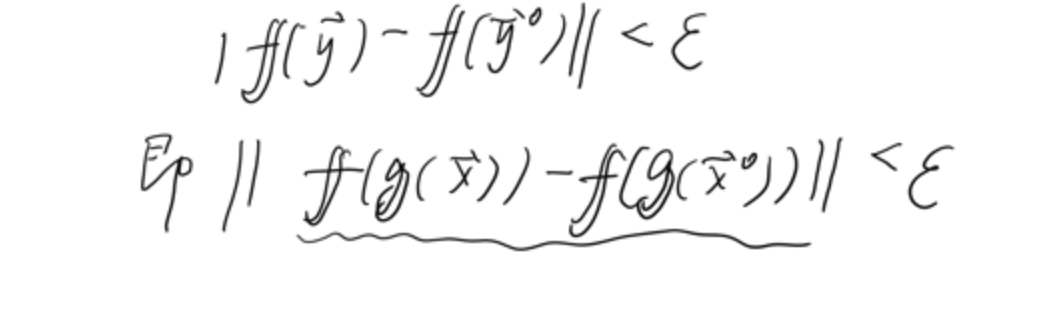 |f(y⃗) - f(y⃗⁰)‖ < ε
即 ‖ f(g(x⃗)) - f(g(x⃗⁰))‖ < ε